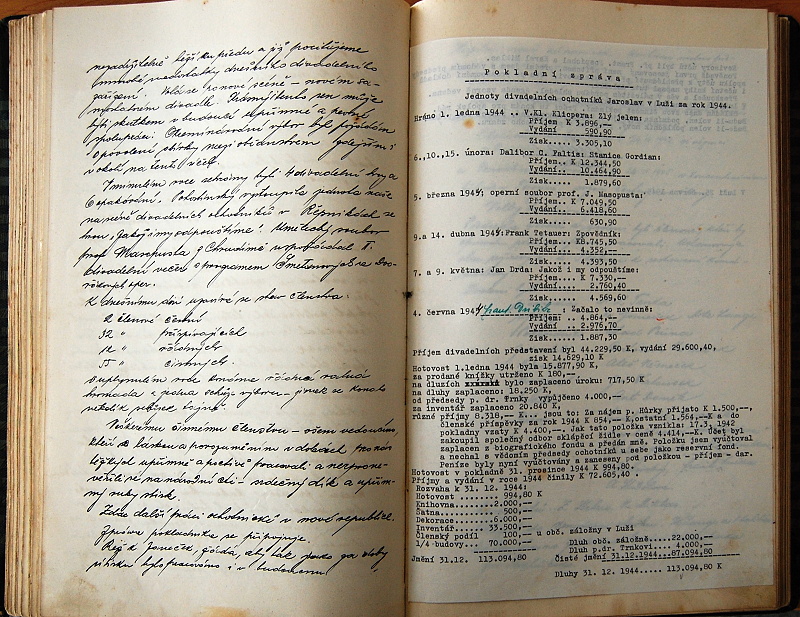 nejpříjemněji
mnohé nedostatky dnešního divadelního
zařízení. Volá se po nové scéně – novém
divadle.
v budoucnu upřímné a pevné
spolupráci. Okem národní výbor byl požádán
o povolení sbírky mezi občanstvem
v okolí na tento účel.
V minulém roce sehrány byly 4 divadelní hry a
6 opakování. Pohostinsky vystoupila jednota naše
na scéně divadelních ochotníků v Řepníkách se
hrou "Jakož i my odpouštíme". Umělecký soubor
prof. Hanapusta z Chrudimě uspořádal I.
divadelní večer s programem Smetanových a Dvo-
řákových oper.
K dnešnímu dni upravil se stav členstva:
2 členové čestní
32 " přispívajících
12 " 
55 " činných.
V uplynulém roce konána řádná valná
hromada a jedna schůze výboru – jinak se konalo
Veškerému činnému členstvu – všem vedoucím,
kteří s láskou a porozuměním v dobách pro nás
těžkých upřímně a poctivě pracovali a nezpronevěřili se národní cti – srdečný dík a upřím-
ný ruky stisk.
Zdar další práci ochotnické v nové republice.
Zpráva pokladníka se připojuje.
Rež. Janeček, žádá, aby tak jako za doby
bylo pracováno i v budoucnu
Pokladní zpráva
Jednoty divadelních ochotníků Jaroslav v Luži za rok 1944.
Hráno 1. ledna 1944 .. V.Kl. Klicpera: Zlý jelen:
Příjem K 3.896,—
Vydání 590,90
Zisk..... 3.305,10
6.,10.,15. února: Dalibor C. Faltis: Stanice Gordian:
Příjem.. K 12.344,50
Vydání 10.464,90
Zisk..... 1.879,60
5. března 1944; operní soubor prof. J. Hanapusta:
Příjem.. K 7.049,50
Vydání 6.418,60
Zisk..... 630,90
9.a 14. dubna 1944: Frank Tetauer: Zpovědník:
Příjem.. K8.745,50
Vydání 4.352,—
Zisk..... 4.393,50
7. a 9. května: Jan Drda: Jakož i my odpouštíme:
Příjem.. K 7.330,—
Vydání 2.760,40
Zisk..... 4.569,60
4. června 1944 : Začalo to nevinně:
Příjem: .. 4.864,—
Vydání .. 2.976,70
Zisk..... 1.887,30
Příjem divadelních představení byl 44.229,50 K, vydání 29.600,40,
zisk 14.629,10 K
Hotovost 1.ledna 1944 byla 15.877,90 K,
za prodané knížky utrženo K 180,—
na dluzích bylo zaplaceno úroku: 717,50 K
na dluhy zaplaceno: 18.250 K,
od předsedy p. dr. Trnky vypůjčeno 4.000,—
za inventář zaplaceno 20.840 K,
různé příjmy 8.318,— K... jsou to: Za nájem p. Hůrky přijato K 1.500,—,
členské příspěvky za rok 1944 K 854,—K,ostatní 1.564,—K a do
pokladny vzaty K 4.400,—, jak tato položka vznikla: 17.3. 1942
zakoupil společný odbor sklápěcí židle v ceně 4.414,—K. Účet byl
zaplacen z biografického fondu a předán sem. Položku jsem vyúčtoval
a nechal s vědomím předsedy ochotníků u sebe jako reservní fond.
Peníze byly nyní vyúčtovány a zaneseny pod položkou – příjem – dar.
Hotovost v pokladně 31. prosince 1944 K 994,80.
Příjmy a vydání v roce 1944 činily K 72.605,40 .
Rozvaha k 31. 12. 1944:
Hotovost ....... 994,80 K
Knihovna .....2.000,—
Šatna......... 500,—
Dekorace......6.000,—
Inventář.....33.500,—
Členský podíl 100,— u obč. záložny v Luži
1/4 budovy... 70.000,— Dluh obč. záložně.....22.000,—
Dluh p.dr. Trnkovi .... 4.000,—
Čisté jmění 31.12.1944....87.094,80
Jmění 31.12. 113.094,80
Dluhy 31. 12. 1944..... 113.094,80 K